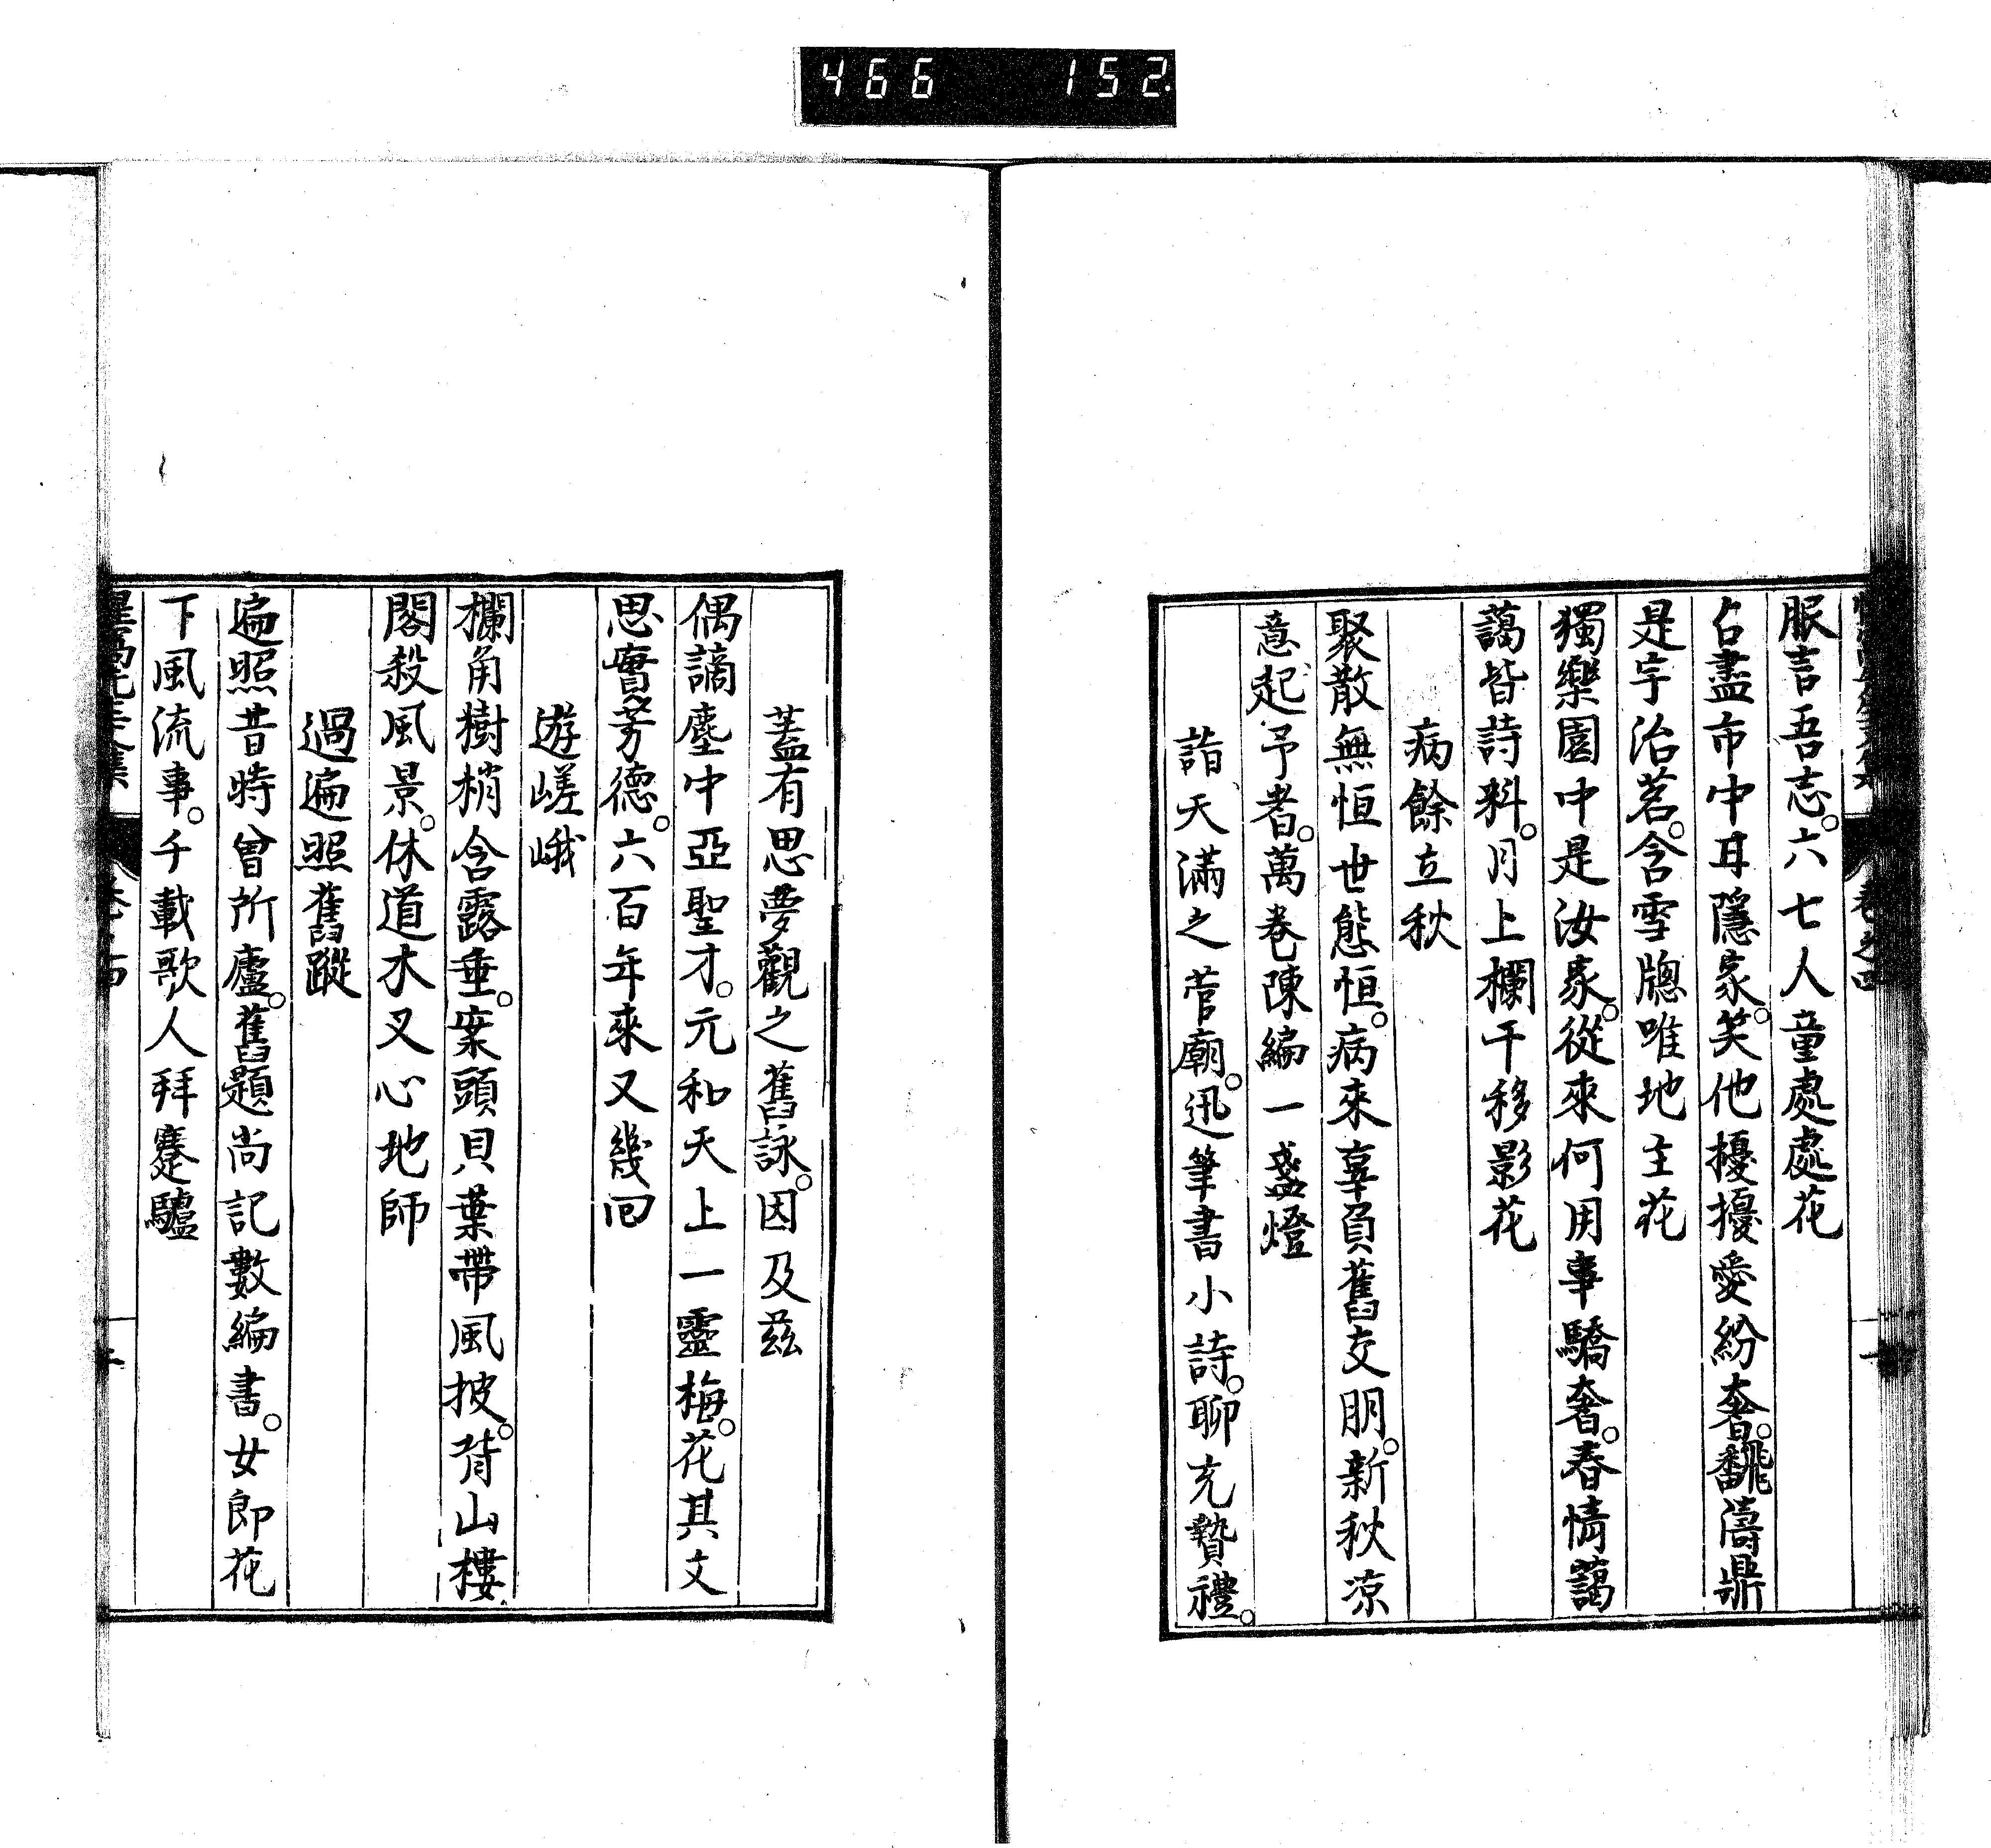 466 152
卷之四
服言吾志。六七人童處處花
占盡市中耳隱家。笑他擾擾愛紛奢。飜濤鼎
是宇治茗。含雪牕唯地主花
獨樂園中是汝家。從來何用事驕奢。春情藹
藹皆詩料。月上欄干移影花
病餘立秋
聚散無恒世態恒。病來辜負舊交朋。新秋凉
意起予者。萬卷陳編一盞燈
詣天滿之菅廟。迅筆書小詩。聊充贄禮。
蓋有思夢觀之舊詠。因及茲
偶謫塵中亞聖才。元和天上一靈梅。花其文
思實芳德。六百年來又幾回
遊嵯峨
欄角樹梢含露垂。案頭貝葉帶風披。背山樓
閣殺風景。休道木叉心地師
過遍照舊蹤
遍照昔時曾所廬。舊題尚記數編書。女郎花
下風流事。千載歌人拜蹇驢